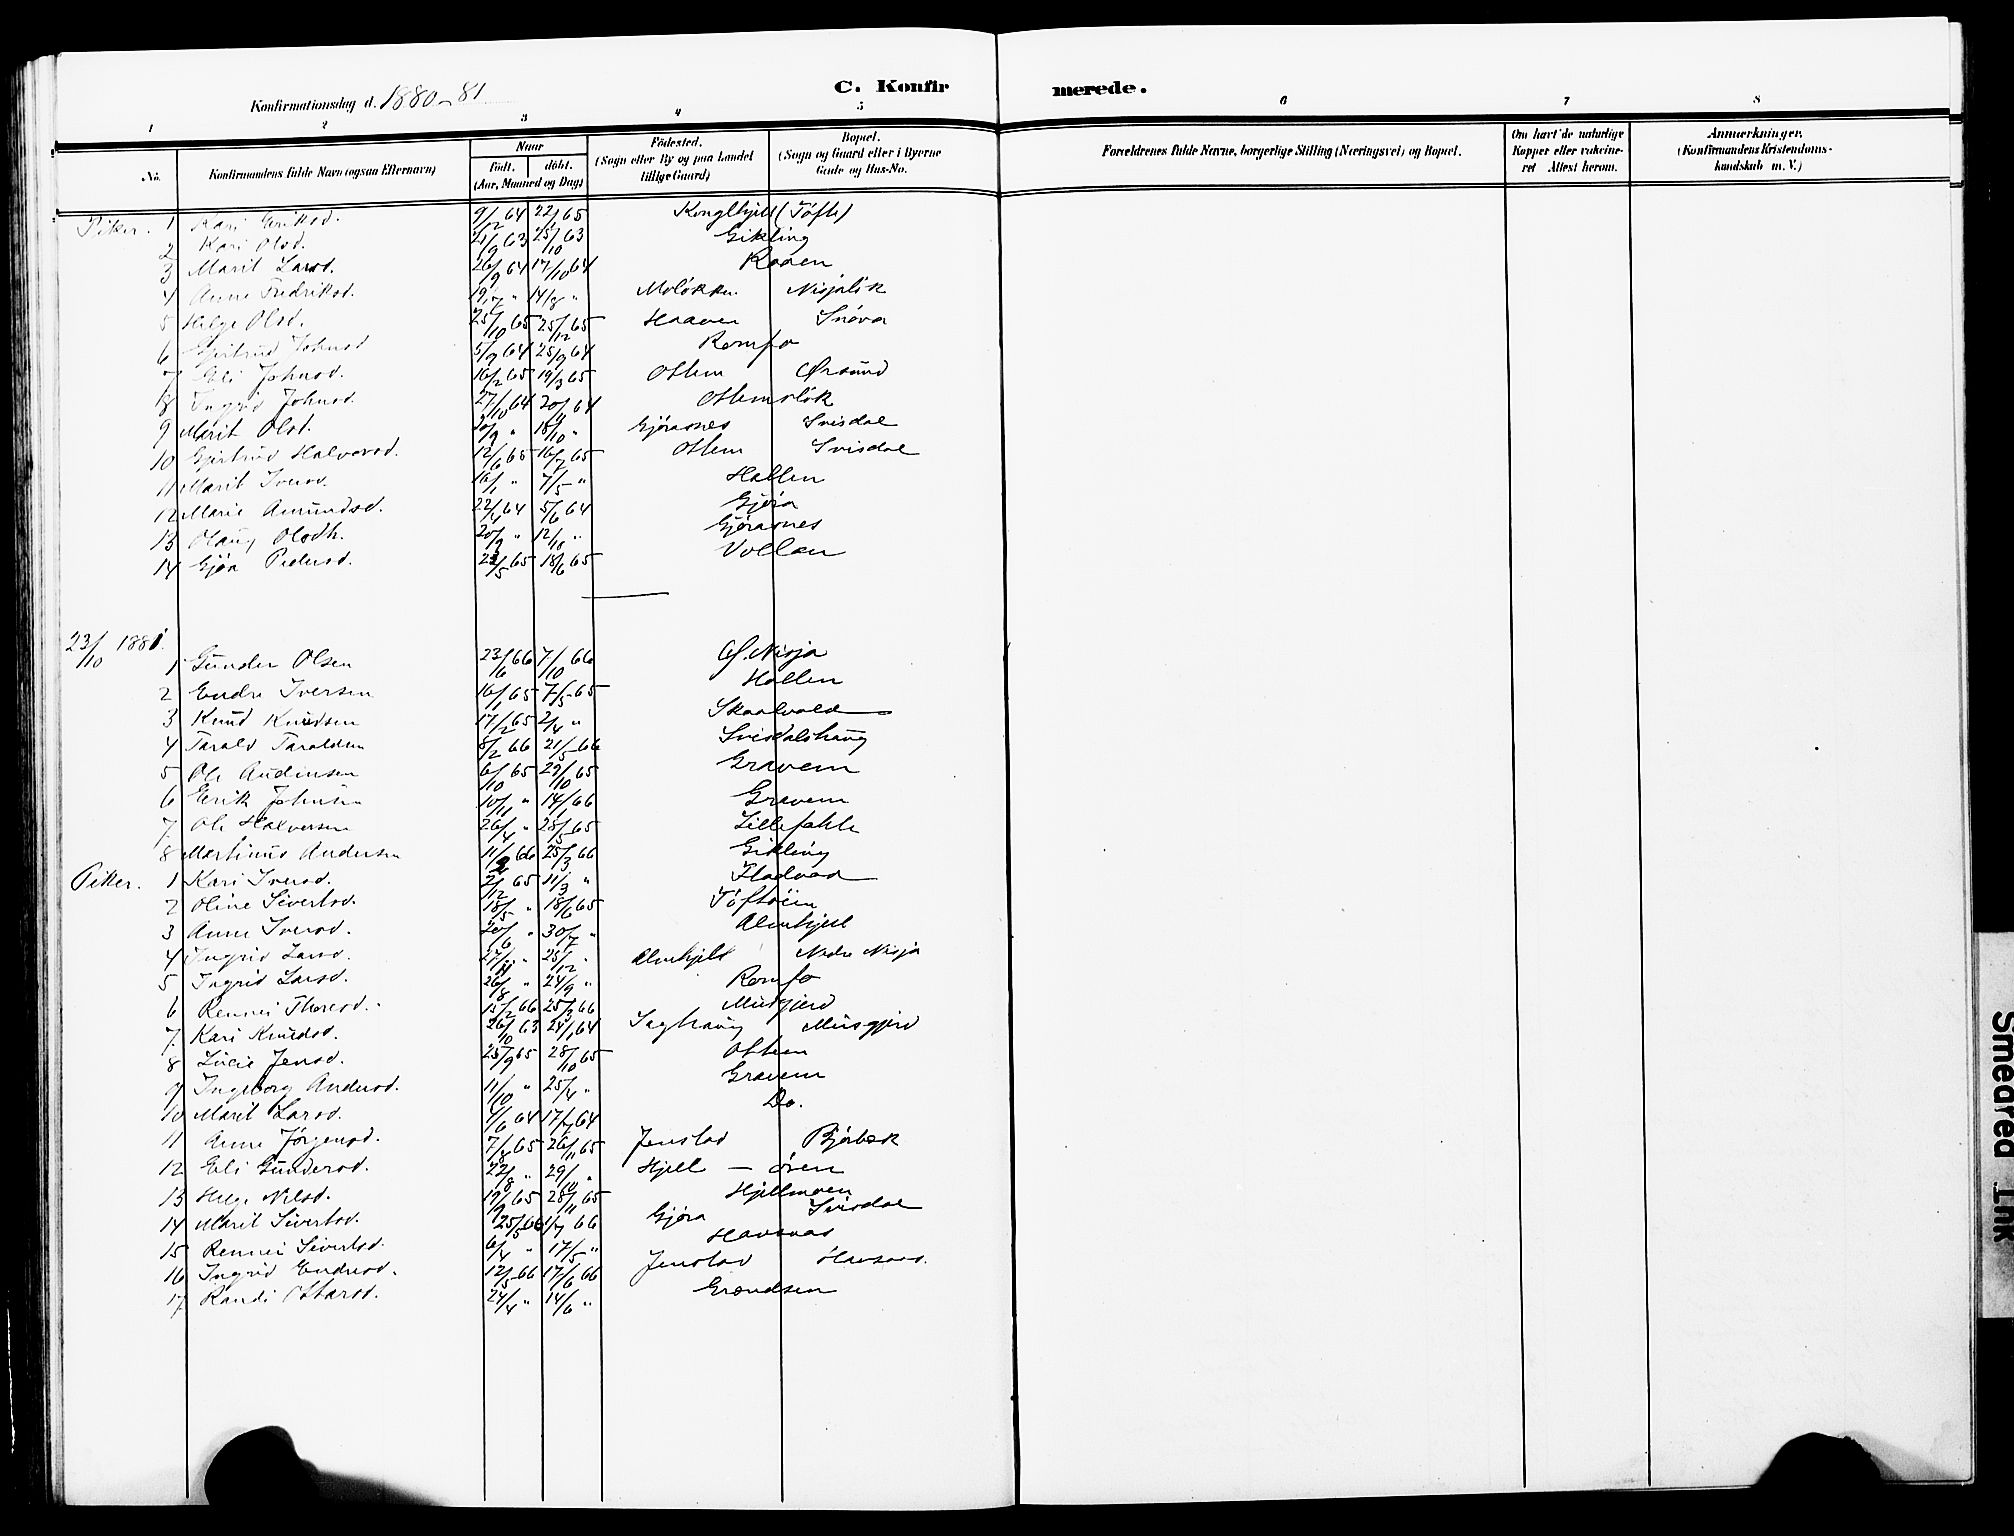 Konfirmationsdag d. 1880-81
C. Konfirmerede.
1 2 3 4 5 6 7 8
No.
Konfirmandens fulde Navn (ogsaa Efternavn)
Naar
født. døbt.
(Aar, Maaned og Dag)
Fødested.
(Sogn eller By og paa Landet
tillige Gaard)
Bopæl.
(Sogn og Gaard eller i Byerne
Gade og Hus-No.
Forældrenes fulde Navne, borgerlige Stilling (Næringsvei) og Bopæl.
Om havt de naturlige
Kopper eller vakcine-
ret Attest herom.
Anmærkninger.
(Konfirmandens Kristendoms-
kundskab m. V.)
Piker. 1 Kari Eriksd. 9/12 64 22/1 65 (Tøfte)
2 Kari Olsd. 21/9 63 25/10 63 Gikling
3 Marit Larsd. 26/9 64 17/10 64 Raaen
4 Anne Fredriksd. 19/7 " 14/8 " Moløkken Nisjalik
5 Helge Olsd. 25/10 65 25/12 65 Haaven Snøva
6 Gjertrud Johnsd 5/9 64 25/9 64 Romfo
7 Eli Johnsd. 16/2 65 19/3 65 Ottem Ørsund
8 Ingrid Johnsd. 27/10 64 20/11 64 Ottemsløk
9 Marit Olsd. 20/9 " 18/10 " Gjørasnes Svisdal
10 Gjertrud Halvorsd. 12/6 65 16/7 65 Ottem Svisdal
11 Marit Iversd. 16/1 " 7/5 " Hallen
12 Marie Amundsd. 22/4 64 5/6 64 Gjøra
13 Olaug Olsdh. 20/9 " 12/10 " Gjørasnes
14 Gjøa Pedersd. 23/5 65 18/6 65 Vollan
23/10 1881.
1 Gunder Olsen 23/6 66 7/10 66 Ø. Nisja
2 Endre Iversen 16/1 65 7/5 65 Hallen
3 Knud Knudsen 17/2 65 2/4 " Skaalvold
4 Tarald Taraldsen 8/2 66 21/5 66 Svisdalshaug
5 Ole Audinsen 6/10 65 29/10 65 Gravem
6 Erik Johnsen 10/11 " 14/1 66 Gravem
7 Ole Halvorsen 26/4 " 28/5 65 Lillefahle
8 Martinus Andersen 11/2 66 25/3 66 Gikling
Piker. 1 Kari Iversd. 2/12 65 11/3 " Fladvad
2 Oline Sivertsd. 18/5 " 18/6 65 Tøftøien
3 Anne Iversd. 20/6 " 30/7 " Almhjell
4 Ingrid Larsd. 27/11 " 25/12 " Almhjell Nedre Nisja
5 Ingrid Larsd. 26/8 " 24/9 " Romfo
6 Rennei Thoresd. 15/2 66 25/3 66 Musgjerd
7. Kari Knudsd. 26/10 63 24/1 64 Saghaug Musgjerd
8 Lucie Jensd. 25/9 65 28/10 65 Ottem
9 Ingeborg Andersd. 11/10 " 25/4 " Gravem
10 Marit Larsd. 4/6 64 17/7 64 Do.
11 Anne Jørgensd. 7/8 65 26/11 65 Jenstad Bjørbæk
12 Eli Gundersd. 22/8 " 29/10 " Hjell – øren
13 Helge Nilsd. 19/9 65 28/11 65 Hjellmoen
14 Marit Sivertsd. 25/5 66 1/7 66 Gjøra Svisdal
15 Rennei Sivertsd. 6/4 " 17/5 " Havsnas
16 Ingrid Endresd. 12/5 66 17/6 66 Jenstad
17 Randi Ottarsd. 24/4 " 14/6 " Grøndsen
Smeared Ink